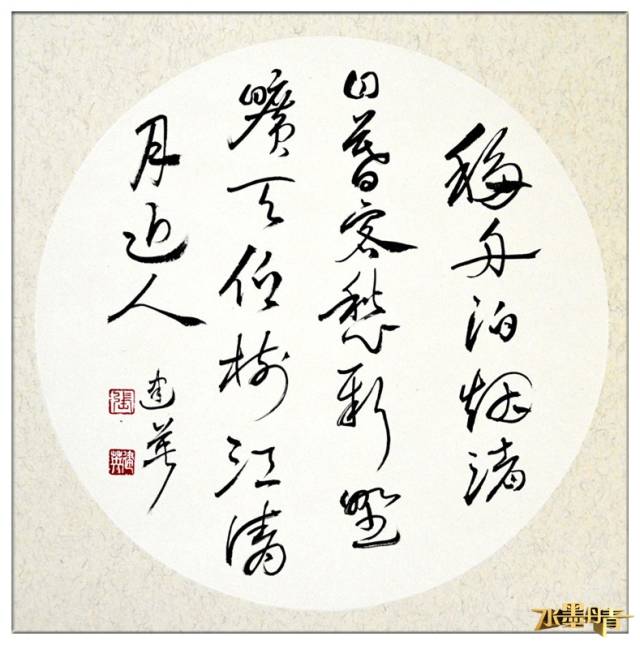 移舟泊烟渚
日暮客愁新野
曠天低树江清
月近人
建華
張
建華
水墨丹青